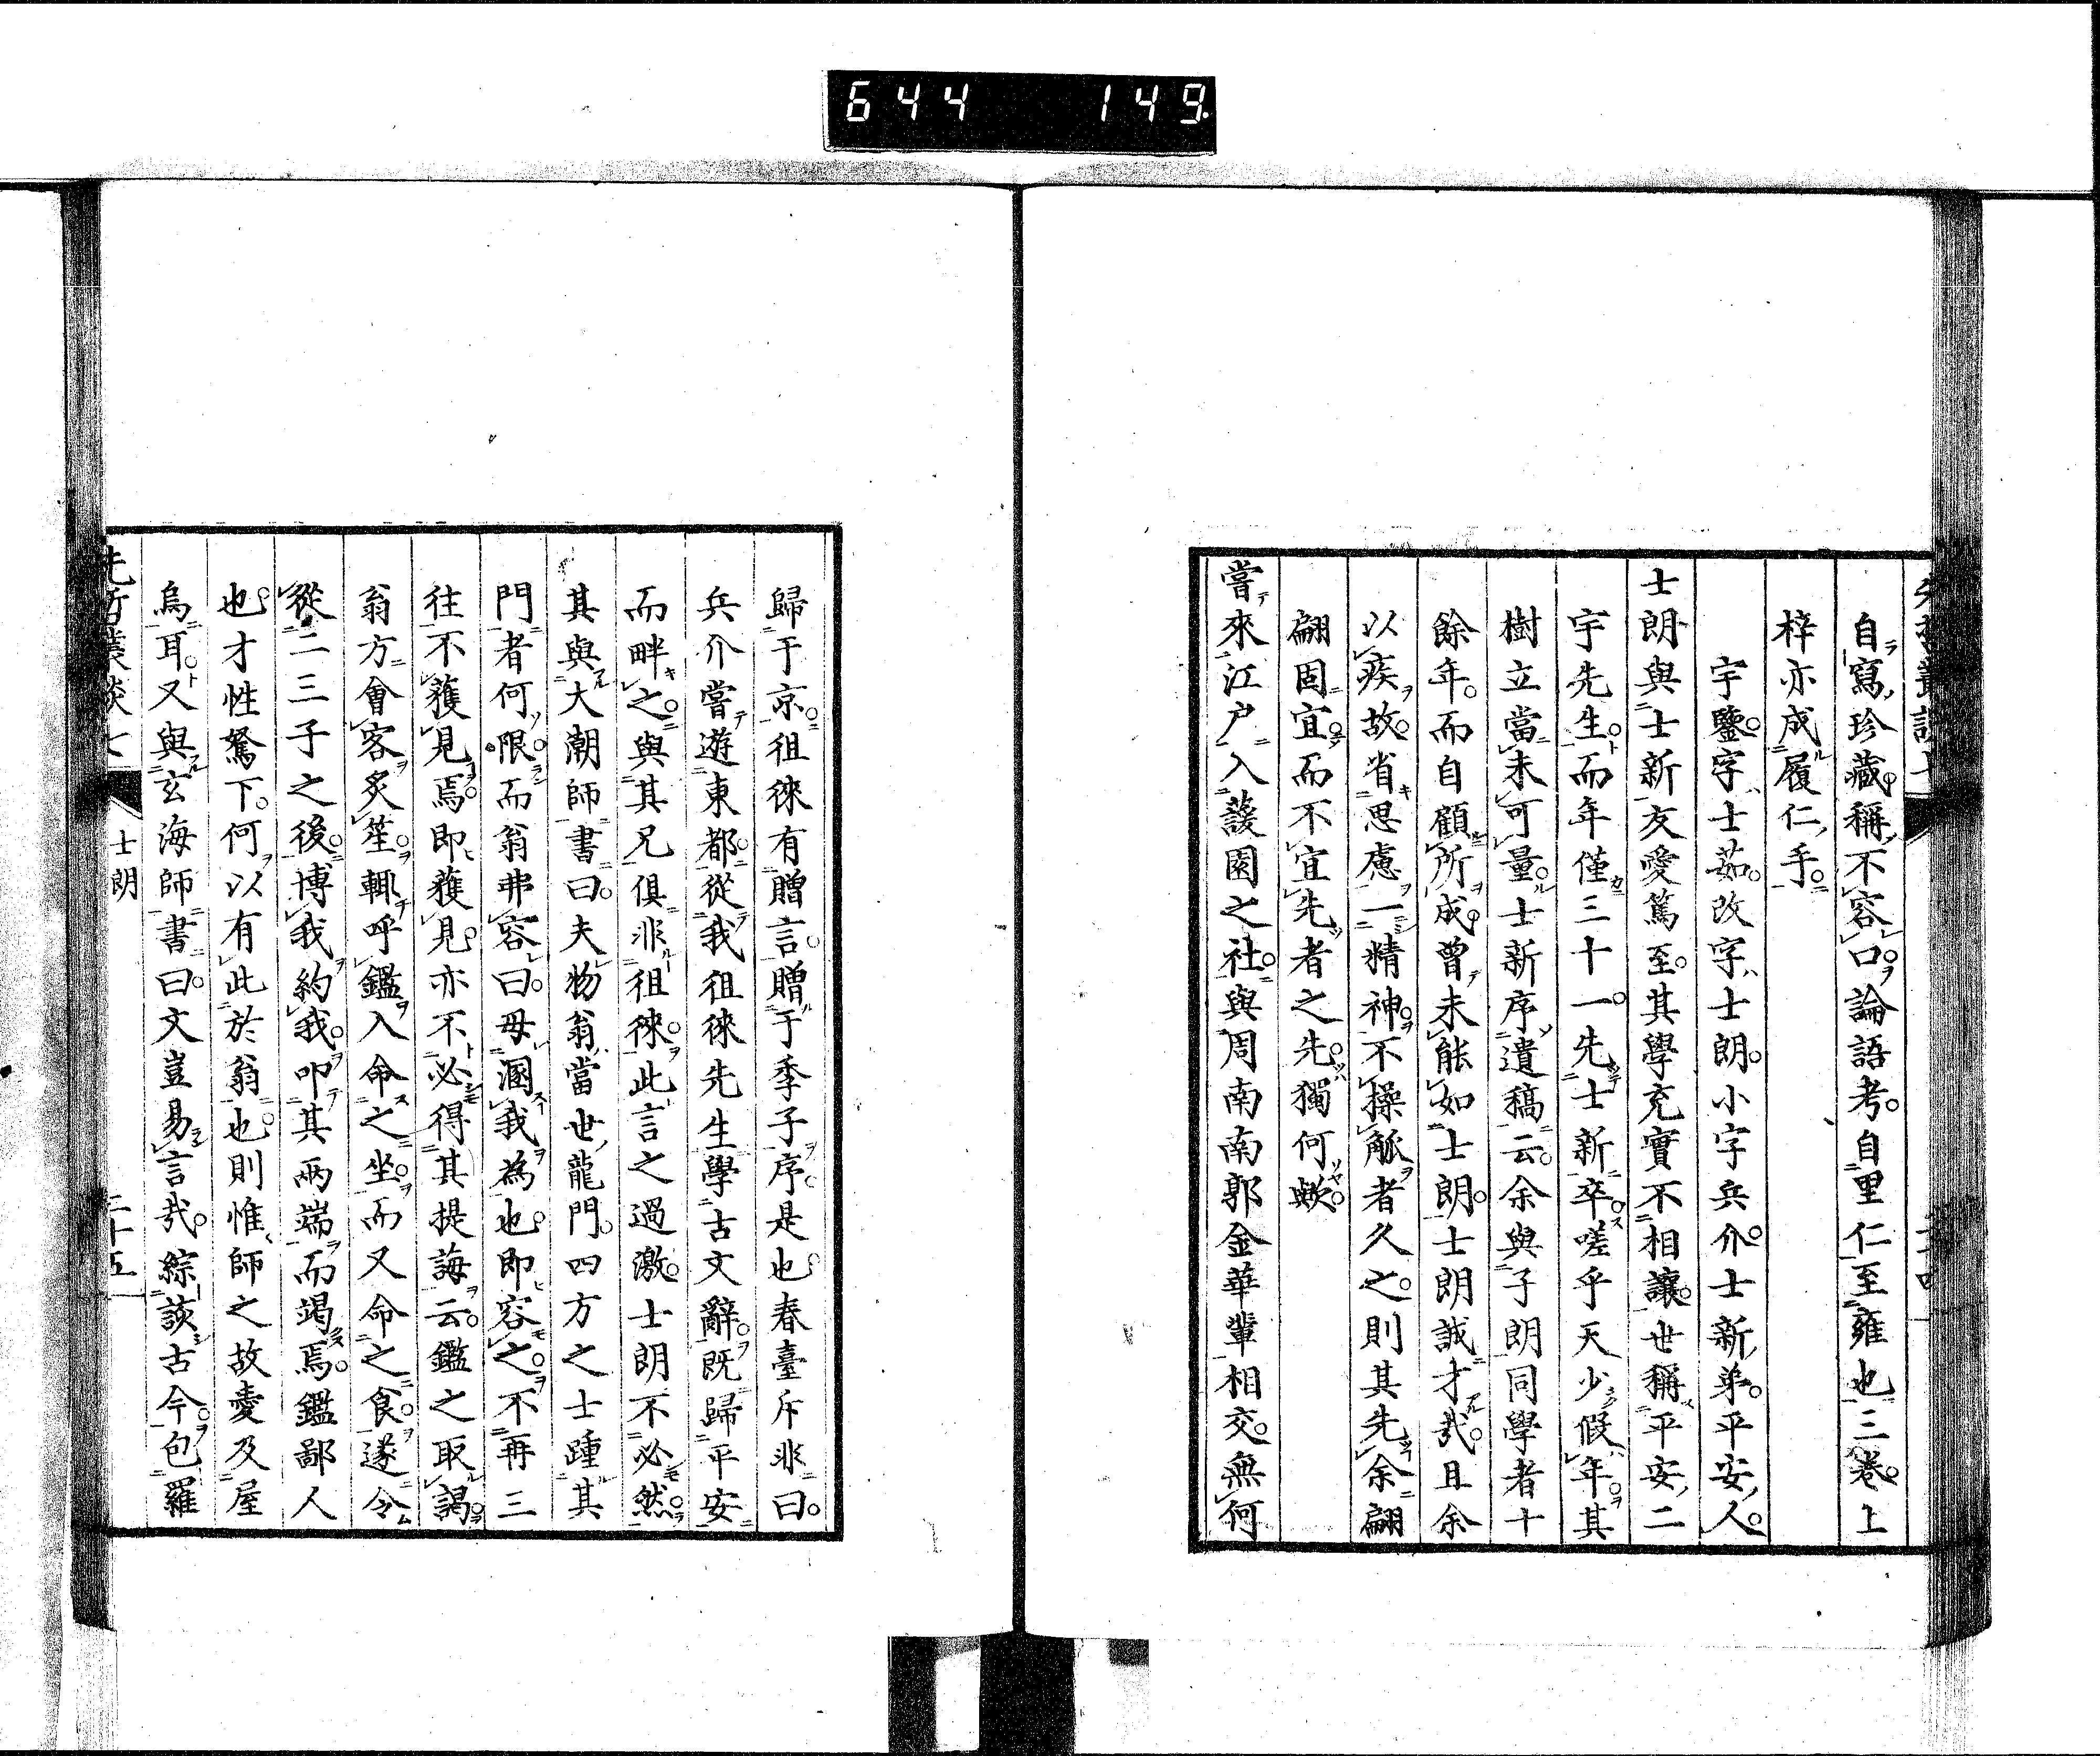 644 149.
自寫珍藏稱不容口論語考自里仁至雍也三卷上
梓亦成履仁手
宇鑒字士茹改字士朗小字兵介士新弟平安人
士朗與士新友愛篤至其學充實不相讓世稱平安二
宇先生而年僅三十一先士新卒嗟乎天少假年其
樹立當未可量士新序遺稿云余與子朗同學者十
餘年而自顧所成曾未能如士朗士朗誠才哉且余
以疾故省思慮一精神不操觚者久之則其先余翩
翩固宜而不宜先者之先獨何歟
嘗來江戸入蘐園之社與周南南郭金華輩相交無何
歸于京徂徠有贈言贈于季子序是也春臺斥非曰
兵介嘗遊東都從我徂徠先生學古文辭既歸平安
而畔之與其兄俱非徂徠此言之過激士朗不必然
其與大潮師書曰夫物翁當世龍門四方之士踵其
門者何限而翁弗容曰毋溷我為也即容之不再三
往不獲見焉即獲見亦不必得其提誨云鑑之取謁
翁方會客炙笙輒呼鑑入命之坐而又命之食遂令
從二三子之後博我約我叩其兩端而竭焉鑑鄙人
也才性駑下何以有此於翁也則惟師之故愛及屋
烏耳又與玄海師書曰文豈易言哉綜談古今包羅
先哲叢談七
士朗
二十五